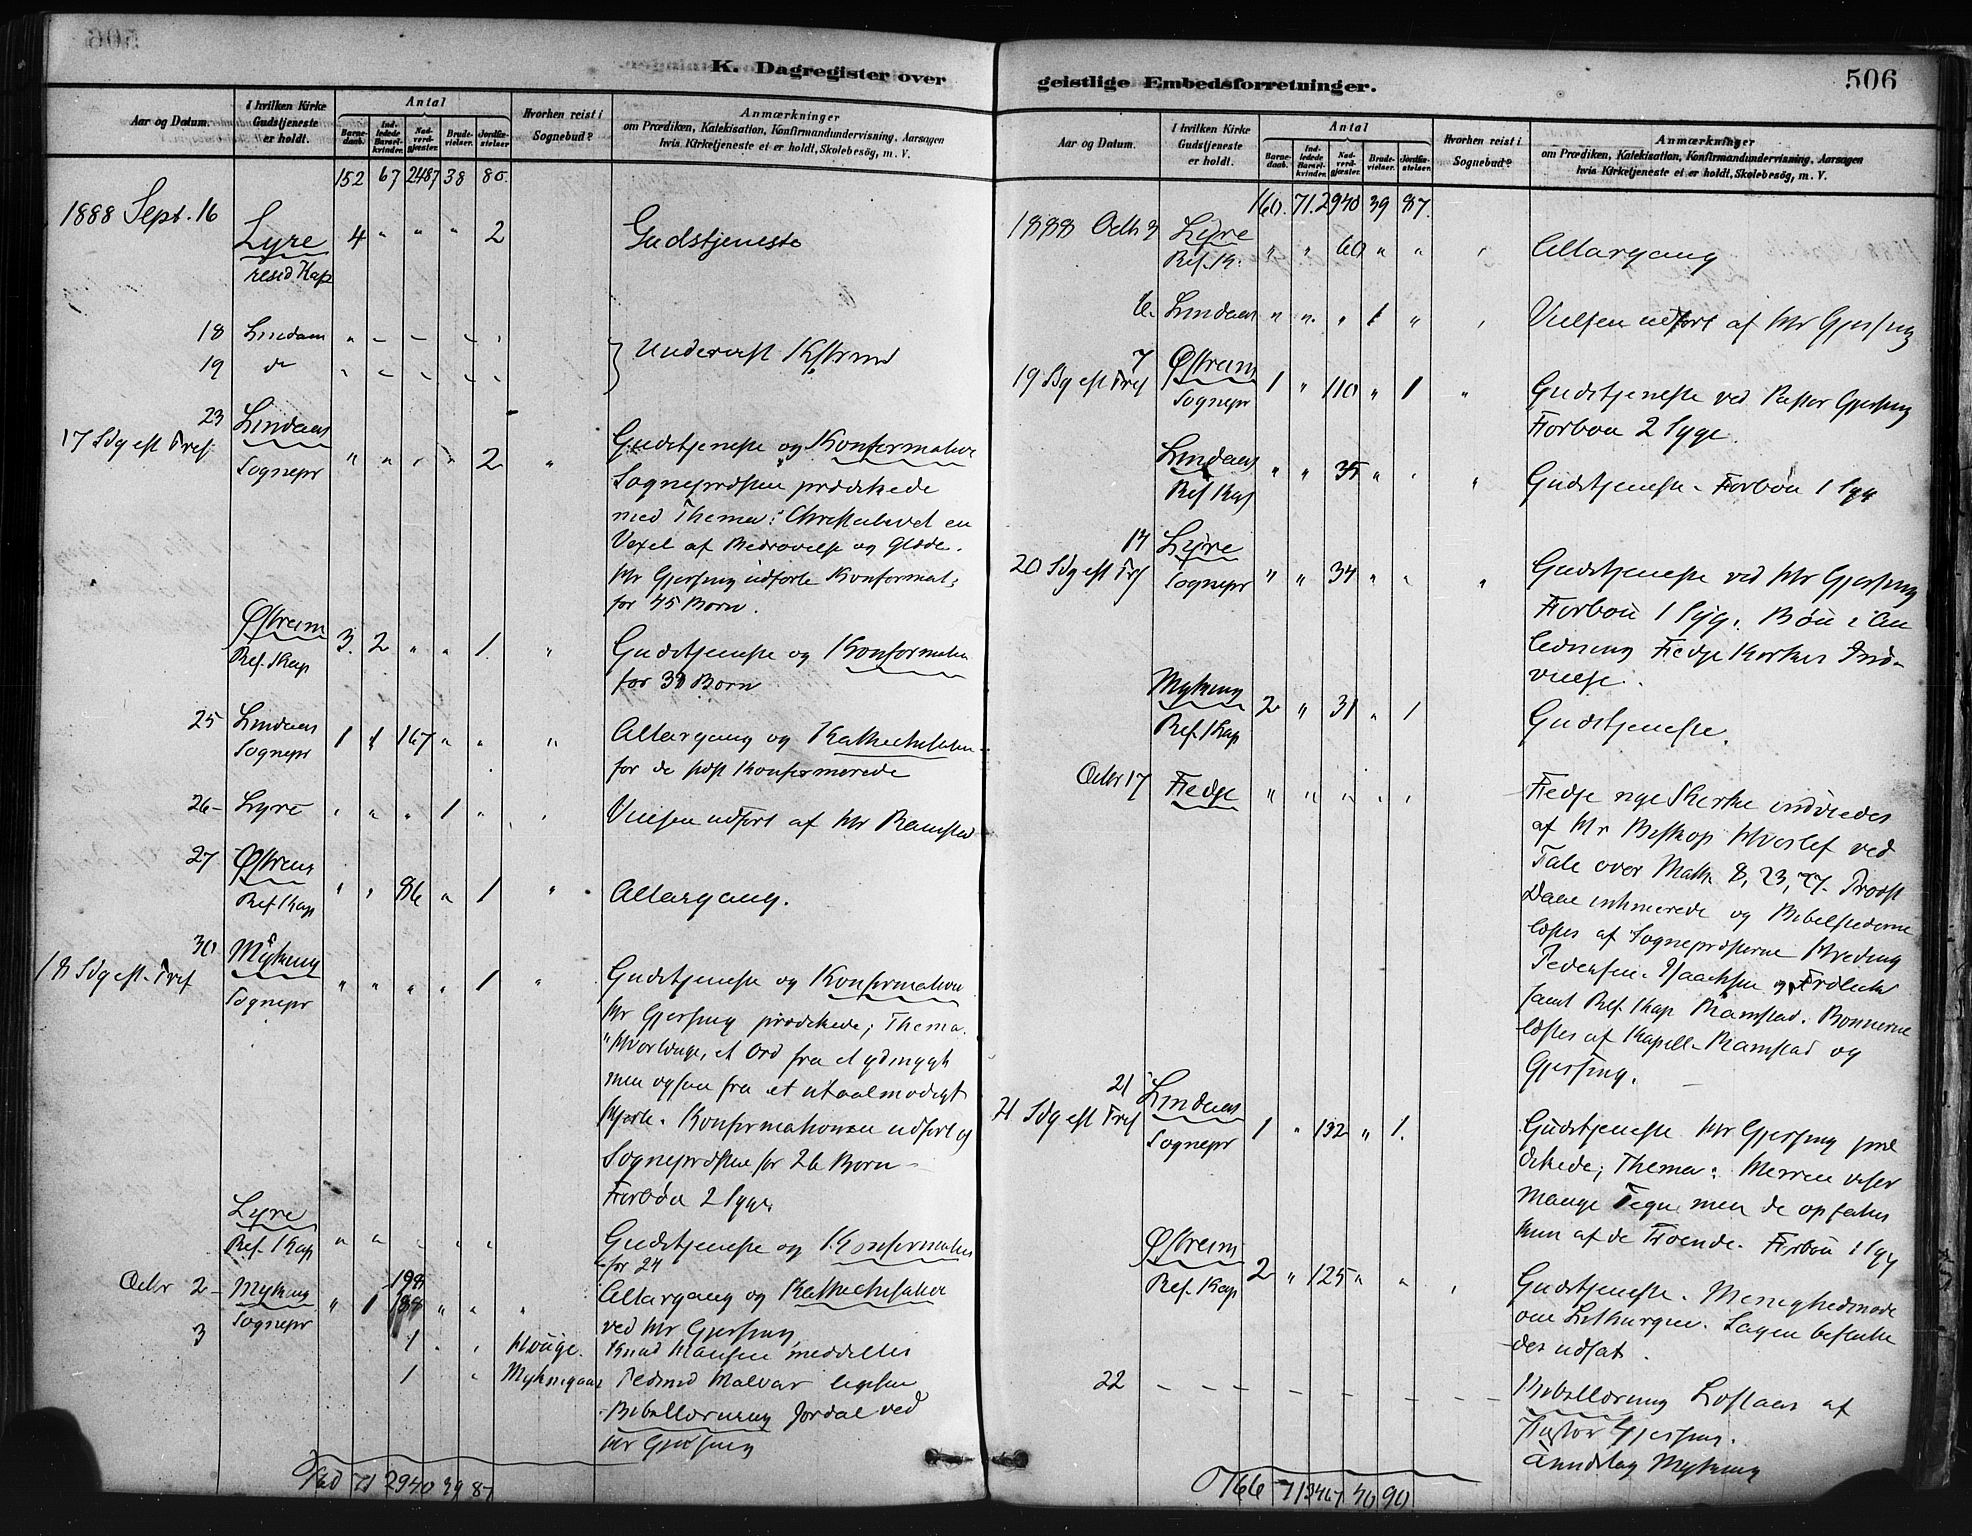 K. Dagregister over
Aar og Datum.
I hvilken Kirke Gudstjeneste er holdt.
Antal
Barnedaab.
Indledede Barselkvinder.
Nadverdgjæster.
Brudevielser.
Jordfæstelser
Hvorhen reist i Sognebud?
Anmærkninger
om Prædiken, Katekisation, Konfirmandundervisning, Aarsagen
hvis Kirketjeneste ei er holdt, Skolebesög, m. V.
152 67 2487 38 80.
1888 Sept. 16 Lyre 4 " " " 2 Gudstjeneste
resid Kap
18 Lindaas
19 do
Undervist
23 Lindaas
17 Sdg eft Tref. Sognepr " " " " 2 " Gudstjeneste og Konfirmation
Sognepræsten prædikede
med Thema: Christenlivet en
Vexel af Bedrøvelse og Glæde.
Hr Gjersing udførte Konfirmat:
for 45 Børn.
Østreim 3. 2 " " 1. " Gudstjeneste og Konfirmation
Res. Kap for Børn
25 Lindaas 1 1 167 " " " Altargang og Kathechisation
Sognepr for de sidst Konfirmerede
26 - Lyre " " " 1 " " Vielsen udført af Hr Ramstad
27 Østreim " " 86 " 1 " Altergang.
Res Kap
30 Myking
18 Sdg eft. Tref Sognepr " " " " 1 " Gudstjeneste og Konfirmation
Hr Gjersing prædikede; Thema.
"Hvorlænge, et Ord fra et ydmygt
men ogsaa fra et utaalmodigt
Hjerte. Konfirmationen udført af
Sognepræsten for 26 Børn -
Forbøn 2 Syge
Lyre " " " " " Gudstjeneste og Konfirmation
Res. Kap for 24
198
Octbr 2 - Myking " 1 188 " " " Altargang og Kathechisation
Sognepr ved Hr Gjersing
3 1 " " Knud Hansen meddeltes
1 " Myknigaas
Bibellæsning Jordal ved
Hr Gjersing
160 71 2940 39 87
geistlige Embedsforretninger.
506
Aar og Datum.
I hvilken Kirke Gudstjeneste er holdt.
Antal
Barnedaab.
Indledede Barselkvinder.
Nadverdgjæster.
Brudevielser.
Jordfæstelser.
Hvorhen reist i Sognebud?
Anmærkninger
om Prædiken, Katekisation, Konfirmandundervisning, Aarsagen
hvis Kirketjeneste ei er holdt, Skolebesög, m. V.
160. 71. 2940 39 87.
1888 Octb Lyre " " 60 " " " Altargang
Res. K.
6. Lindaas " " " 1 " " Vielsen udført af Hr Gjersing
7 Østreim
19 Sdg eft Tref Sognepr 1 " 110 " 1 " Gudstjeneste ved Pastor Gjersing
Forbøn 2 Syge.
Lindaas " " 35 " " " Gudstjeneste - Forbøn 1 Syg
Res Kap
14 Lyre
20 Sdg eft Tref Sognepr " " 34 " " " Gudstjeneste ved Hr Gjersing
Forbøn 1 Syg. Bøn i An
ledning Fedje Kirkes Ind-
vielse.
Myking 2 " 31 " 1 Gudstjeneste.
Res. Kap
Octbr 17 Fedje " " " " " Fedje nye Kirke indviedes
af Hr Biskop Hvoslef ved
Tale over Math. 8, 23, 27. Provst
Daae intimerede og Bibelstederne
læstes af Sognepræsterne Hveding
Pedersen. Isaachsen og Frølich
samt Res. Kap Ramstad. Bønnerne
læstes af Kapell. Ramstad og
Gjersing.
21 Lindaas
21 Sdg eft Tref Sognepr 1 " 132 " 1. Gudstjeneste Hr Gjersing præ
dikede; Thema: Herren viser
mange Tegn, men de opfattes
kun af de Troende. Forbøn 1 Syg
Østreim 2 " 125 " " " Gudstjeneste. Menighedsmøde
Res. Kap om Lithurgien. Sagen beslutte
des udsat.
22 - - - - - - - Bibellæsning Loftaas af
Pastor Gjersing.
Myking
166 71 3467 40 90